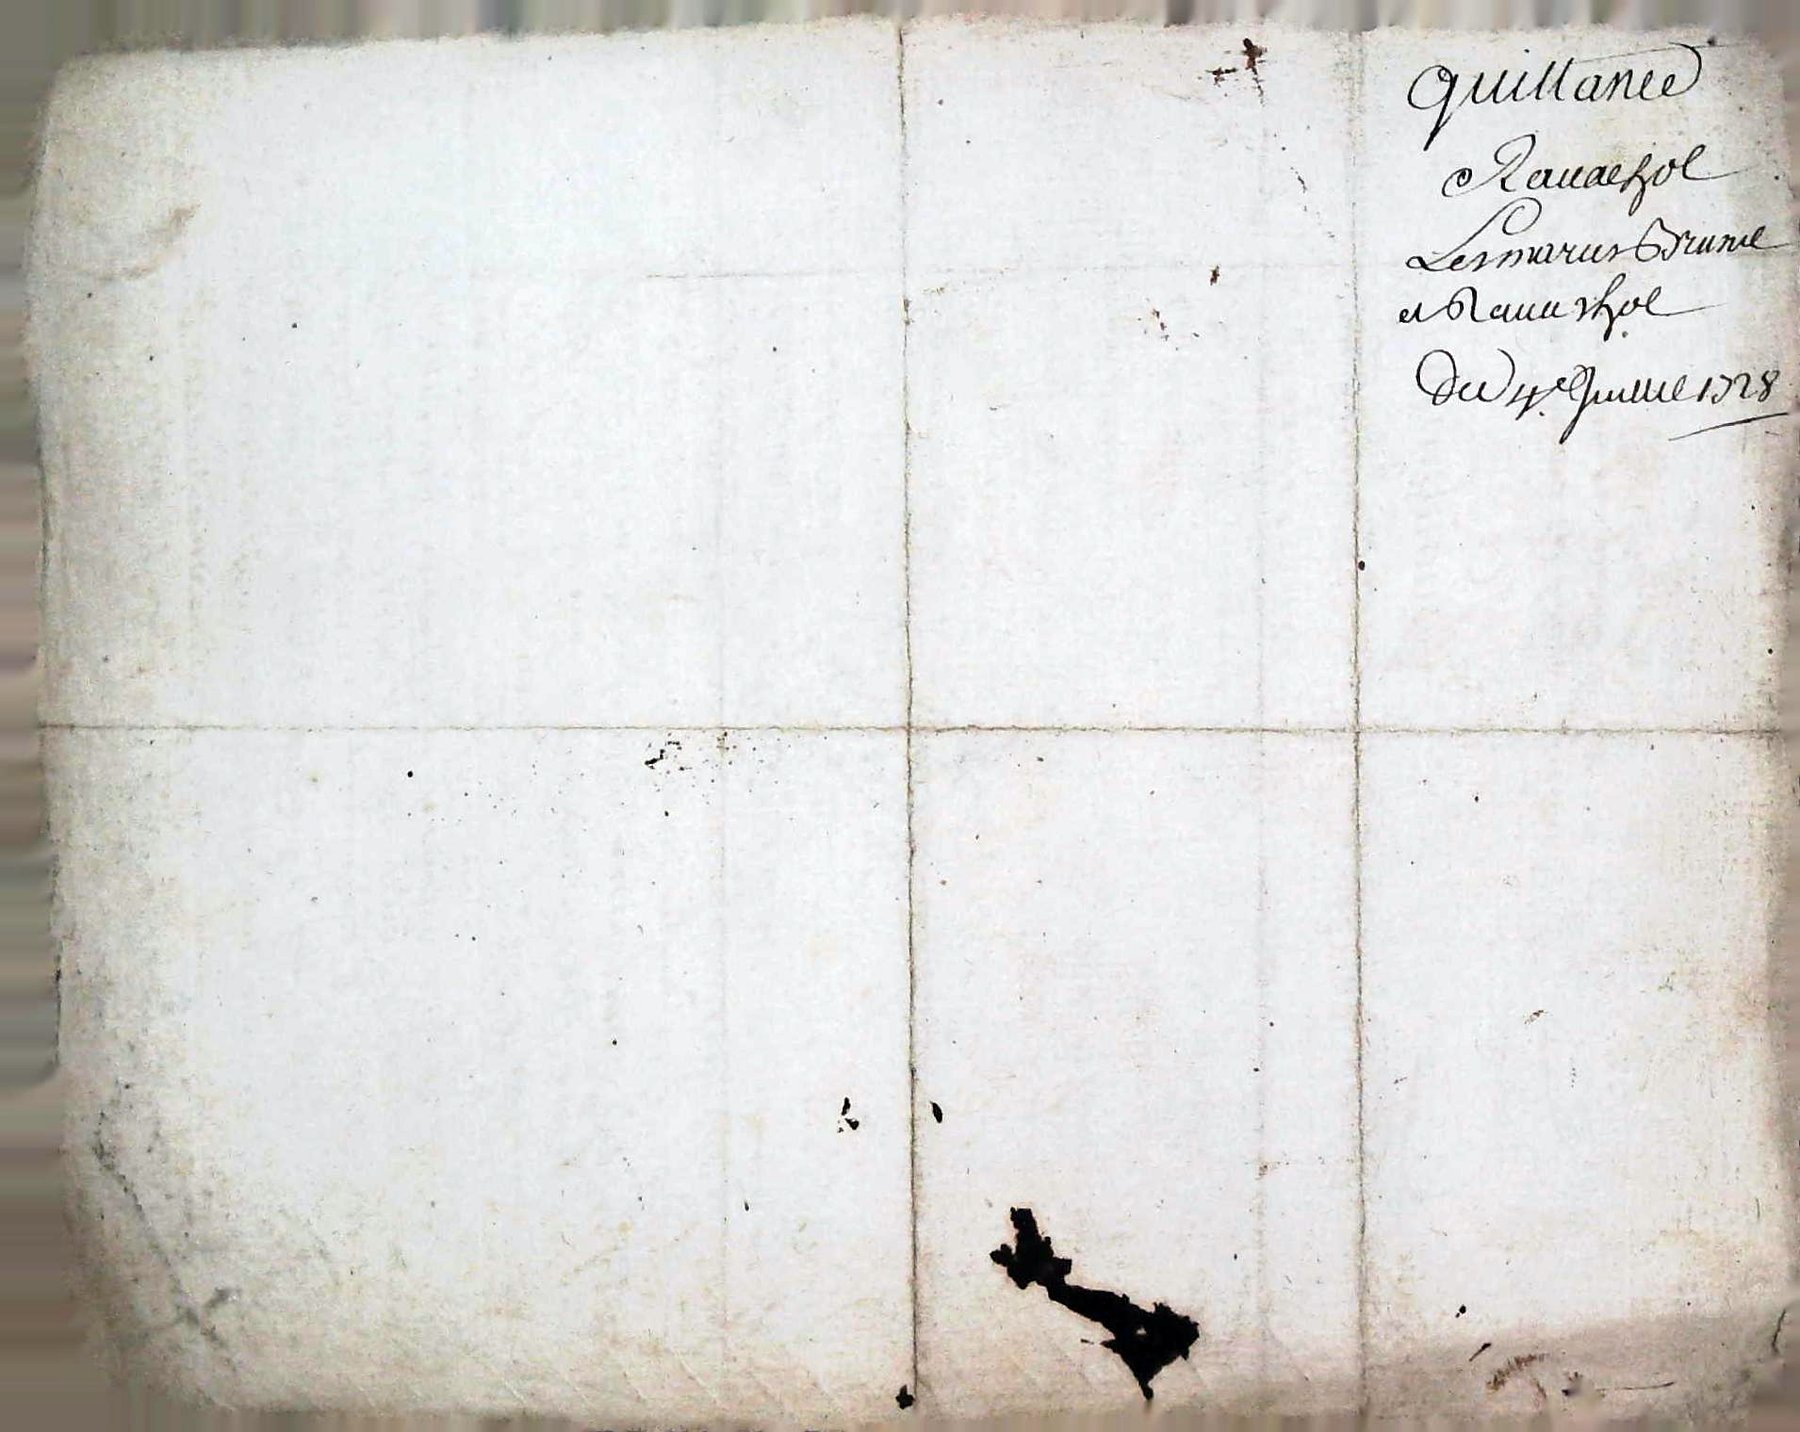 Quittance
Ravachol
Les maries Brune
et Ravachol
Du 4e Juillet 1728